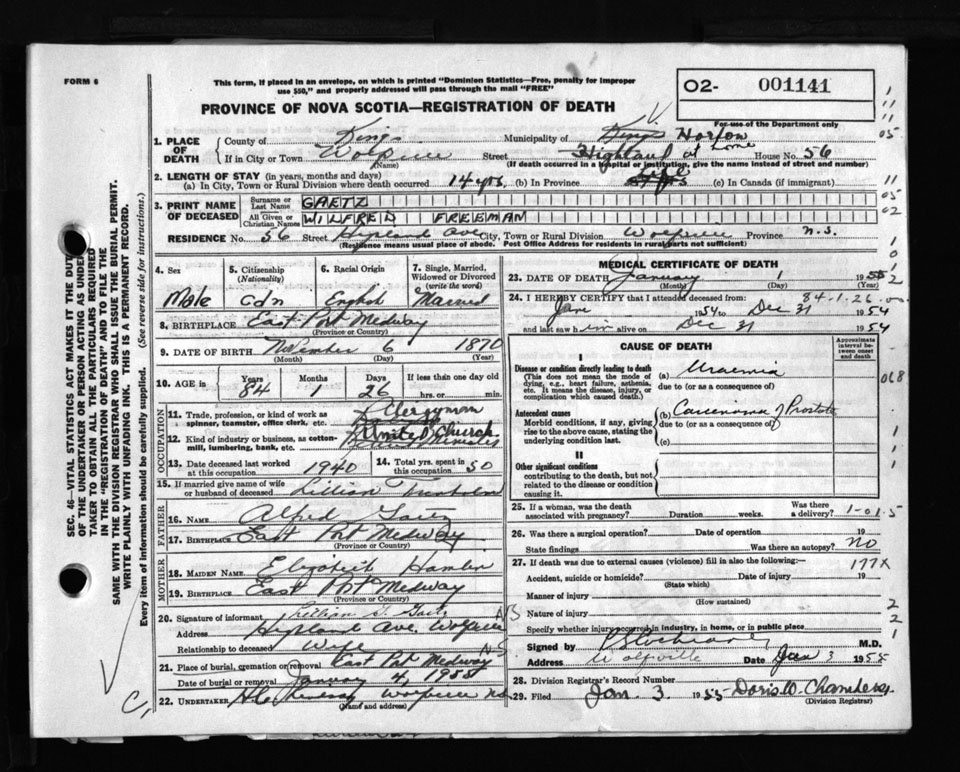 FORM 6
This form, if placed in an envelope, on which is printed "Dominion Statistics—Free, penalty for improper
use $50," and properly addressed will pass through the mail "FREE"
02- 001141
For use of the Department only
PROVINCE OF NOVA SCOTIA—REGISTRATION OF DEATH
1. PLACE OF DEATH
County of Kings Municipality of Kings Horton
If in City or Town Street Highland at home House No. 56
(Name) (If death occurred in a hospital or institution, give the name instead of street and number)
2. LENGTH OF STAY (in years, months and days)
(a) In City, Town or Rural Division where death occurred 14 yrs. (b) In Province Life (c) In Canada (if immigrant)
3. PRINT NAME OF DECEASED
Surname or Last Name GAETZ
All Given or Christian Names WILFRED FREEMAN
RESIDENCE No. 56 Street Highland Ave City, Town or Rural Division Province N.S.
(Residence means usual place of abode. Post Office Address for residents in rural parts not sufficient)
4. Sex Male
5. Citizenship (Nationality) Cdn
6. Racial Origin English
7. Single, Married, Widowed or Divorced (write the word) Married
8. BIRTHPLACE East Port Medway
(Province or Country)
9. DATE OF BIRTH November 6 1870
(Month) (Day) (Year)
10. AGE in Years 84 Months 1 Days 26 If less than one day old
hrs. or min.
OCCUPATION
11. Trade, profession, or kind of work as spinner, teamster, office clerk, etc. Clergyman
12. Kind of industry or business, as cotton-mill, lumbering, bank, etc. United Church
13. Date deceased last worked at this occupation 1940
14. Total yrs. spent in this occupation 50
15. If married give name of wife or husband of deceased Lillian
FATHER
16. NAME Alfred Gaetz
17. BIRTHPLACE East Port Medway
(Province or Country)
MOTHER
18. MAIDEN NAME Elizabeth
19. BIRTHPLACE East Port Medway
(Province or Country)
20. Signature of informant Lillian Gaetz
Address Highland Ave. NS
Relationship to deceased Wife
21. Place of burial, cremation or removal East Port Medway NS
Date of burial or removal January 4, 1955
22. UNDERTAKER NS
(Name and address)
MEDICAL CERTIFICATE OF DEATH
23. DATE OF DEATH January 1 1955
(Month) (Day)
84-1-26
24. I HEREBY CERTIFY that I attended deceased from:
Jan 1954 to Dec 31 1954
and last saw him alive on Dec 31 1954
CAUSE OF DEATH
Approximate interval between onset and death
I
Disease or condition directly leading to death
(This does not mean the mode of dying, e.g., heart failure, asthenia, etc. It means the disease, injury, or complication which caused death.)
(a) Uraemia
due to (or as a consequence of)
068
Antecedent causes
Morbid conditions, if any, giving rise to the above cause, stating the underlying condition last.
(b) Carcinoma of Prostate
due to (or as a consequence of)
(c)
II
Other significant conditions
contributing to the death, but not related to the disease or condition causing it.
25. If a woman, was the death associated with pregnancy? Duration weeks. Was there a delivery?
26. Was there a surgical operation? Date of operation 19
State findings Was there an autopsy? no
27. If death was due to external causes (violence) fill in also the following:
177X
Accident, suicide or homicide? Date of injury 19
(State which)
Manner of injury
(How sustained)
Nature of injury
Specify whether injury occurred in industry, in home, or in public place
Signed by M.D.
Address Wolfville Date Jan 3 1955
28. Division Registrar's Record Number
29. Filed Jan. 3. 1955 Doris W. Chambers.
(Division Registrar)
SEC. 46—VITAL STATISTICS ACT MAKES IT THE DUTY
OF THE UNDERTAKER OR PERSON ACTING AS UNDER-
TAKER TO OBTAIN ALL THE PARTICULARS REQUIRED
IN THE "REGISTRATION OF DEATH" AND TO FILE THE
SAME WITH THE DIVISION REGISTRAR WHO SHALL ISSUE THE BURIAL PERMIT.
WRITE PLAINLY WITH UNFADING INK. THIS IS A PERMANENT RECORD.
Every item of information should be carefully supplied. (See reverse side for instructions.)